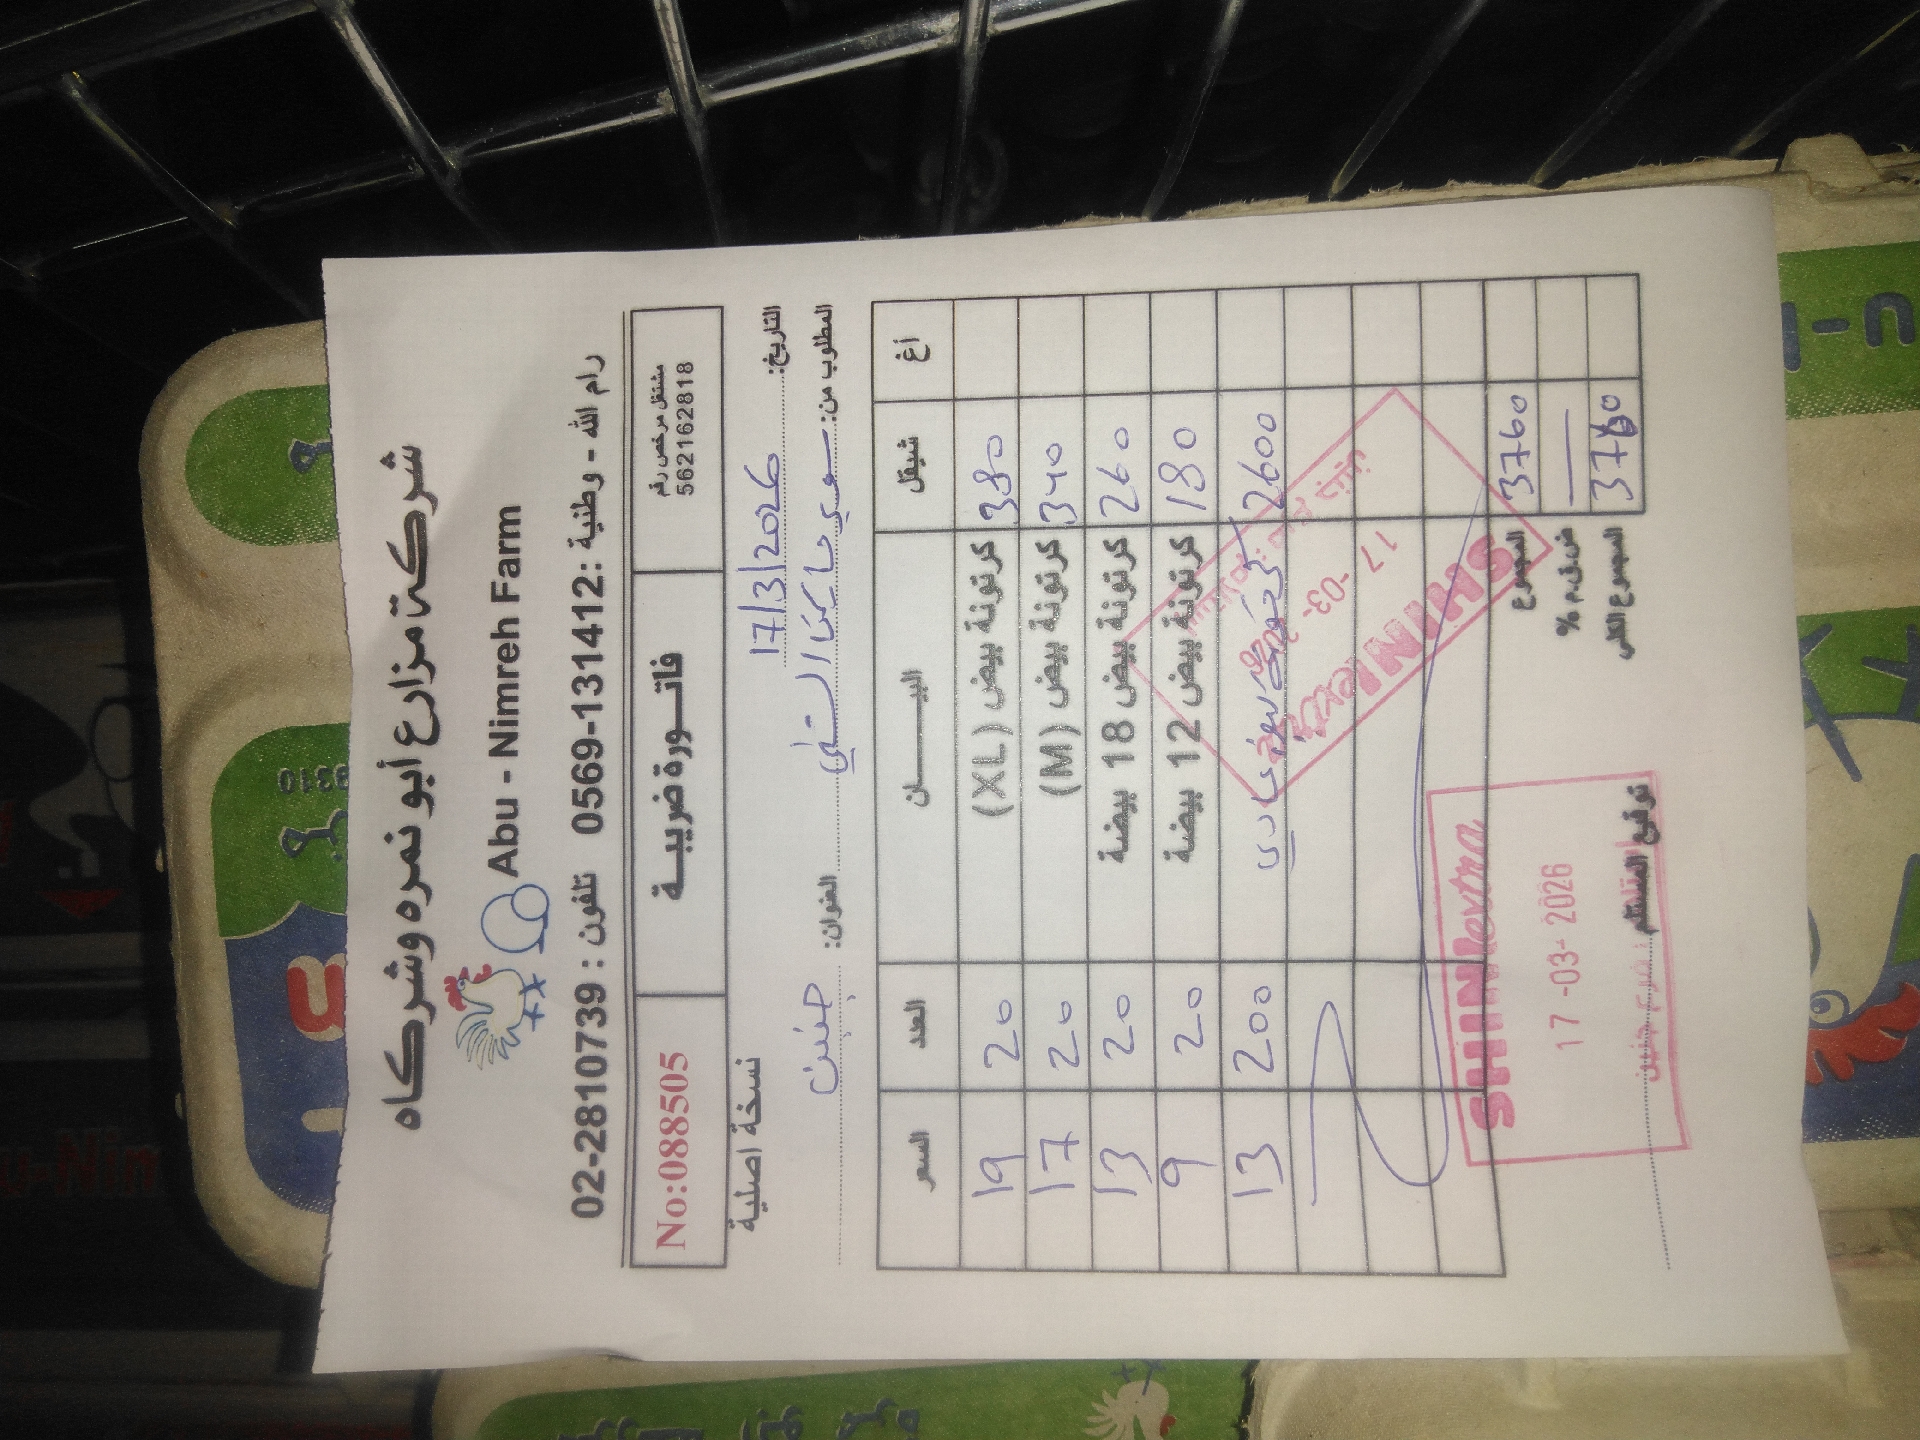 شركة مزارع أبو نمره وشركاه
Abu - Nimreh Farm
رام الله - وطنية : 0569-131412 تلفون : 02-2810739
مشتغل مرخص رقم
562162818
فاتورة ضريبية
No:088505
التاريخ: 17/3/2026
نسخة اصلية
المطلوب من: سوبر ماركت الشني
العنوان: جنين
أغ شيقل البيان العدد السعر
380 كرتونة بيض (XL) 20 19
340 كرتونة بيض (M) 20 17
260 كرتونة بيض 18 بيضة 20 13
180 كرتونة بيض 12 بيضة 20 9
2600 بيض عادي 200 13
المجموع 3760
ض.ق.م % —
المجموع الكلي 3760
SHINIextra
17-03-2026
SHINIextra
17-03-2026
فرع جنين
توقيع المستلم